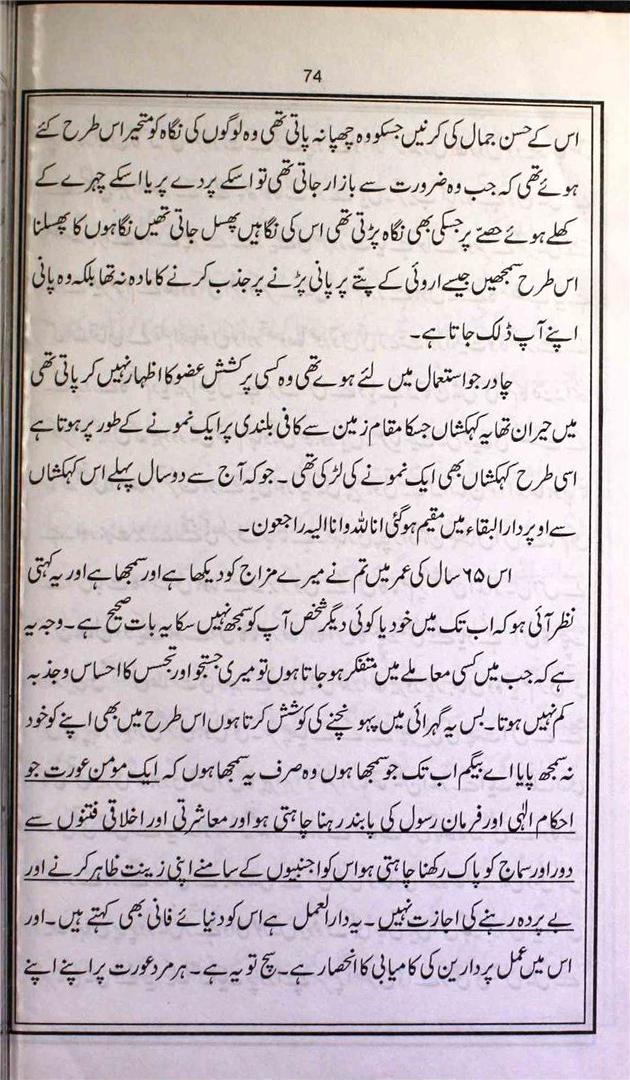 74
اس کے حسن جمال کی کرنیں جسکو وہ چھپا نہ پاتی تھی وہ لوگوں کی نگاہ کو متحیر اس طرح کئے
ہوئے تھی کہ جب وہ ضرورت سے بازار جاتی تھی تو اسکے پردے پر یا اسکے چہرے کے
کھلے ہوئے حصّے پر جسکی بھی نگاہ پڑتی تھی اس کی نگاہیں پھسل جاتی تھیں نگاہوں کا پھسلنا
اس طرح سمجھیں جیسے اروئی کے پتّے پر پانی پڑنے پر جذب کرنے کا مادہ نہ تھا بلکہ وہ پانی
اپنے آپ ڈلک جاتا ہے۔
چادر جو استعمال میں لئے ہوے تھی وہ کسی پر کشش عضو کا اظہار نہیں کر پاتی تھی
میں حیران تھا یہ کہکشاں جسکا مقام زمین سے کافی بلندی پر ایک نمونے کے طور پر ہوتا ہے
اسی طرح کہکشاں بھی ایک نمونے کی لڑکی تھی ۔ جو کہ آج سے دو سال پہلے اس کہکشاں
سے اوپر دار البقاء میں مقیم ہو گئی انا للہ وانا الیہ راجعون۔
اس ۶۵ سال کی عمر میں تم نے میرے مزاج کو دیکھا ہے اور سمجھا ہے اور یہ کہتی
نظر آئی ہو کہ اب تک میں خود یا کوئی دیگر شخص آپ کو سمجھ نہیں سکا یہ بات صحیح ہے ۔ وجہ یہ
ہے کہ جب میں کسی معاملے میں متفکر ہو جاتا ہوں تو میری جستجو اور تجسس کا احساس و جذبہ
کم نہیں ہوتا ۔ بس یہ گہرائی میں پہونچنے کی کوشش کرتا ہوں اس طرح میں بھی اپنے کو خود
نہ سمجھ پایا اے بیگم اب تک جو سمجھا ہوں وہ صرف یہ سمجھا ہوں کہ ایک مومن عورت جو
احکام الٰہی اور فرمان رسول کی پابند رہنا چاہتی ہو اور معاشرتی اور اخلاقی فتنوں سے
دور اور سماج کو پاک رکھنا چاہتی ہو اس کو اجنبیوں کے سامنے اپنی زینت ظاہر کرنے اور
بے پردہ رہنے کی اجازت نہیں ۔ یہ دار العمل ہے اس کو دنیائے فانی بھی کہتے ہیں ۔ اور
اس میں عمل پر دارین کی کامیابی کا انحصار ہے۔ سچ تو یہ ہے ۔ ہر مرد عورت پر اپنے اپنے